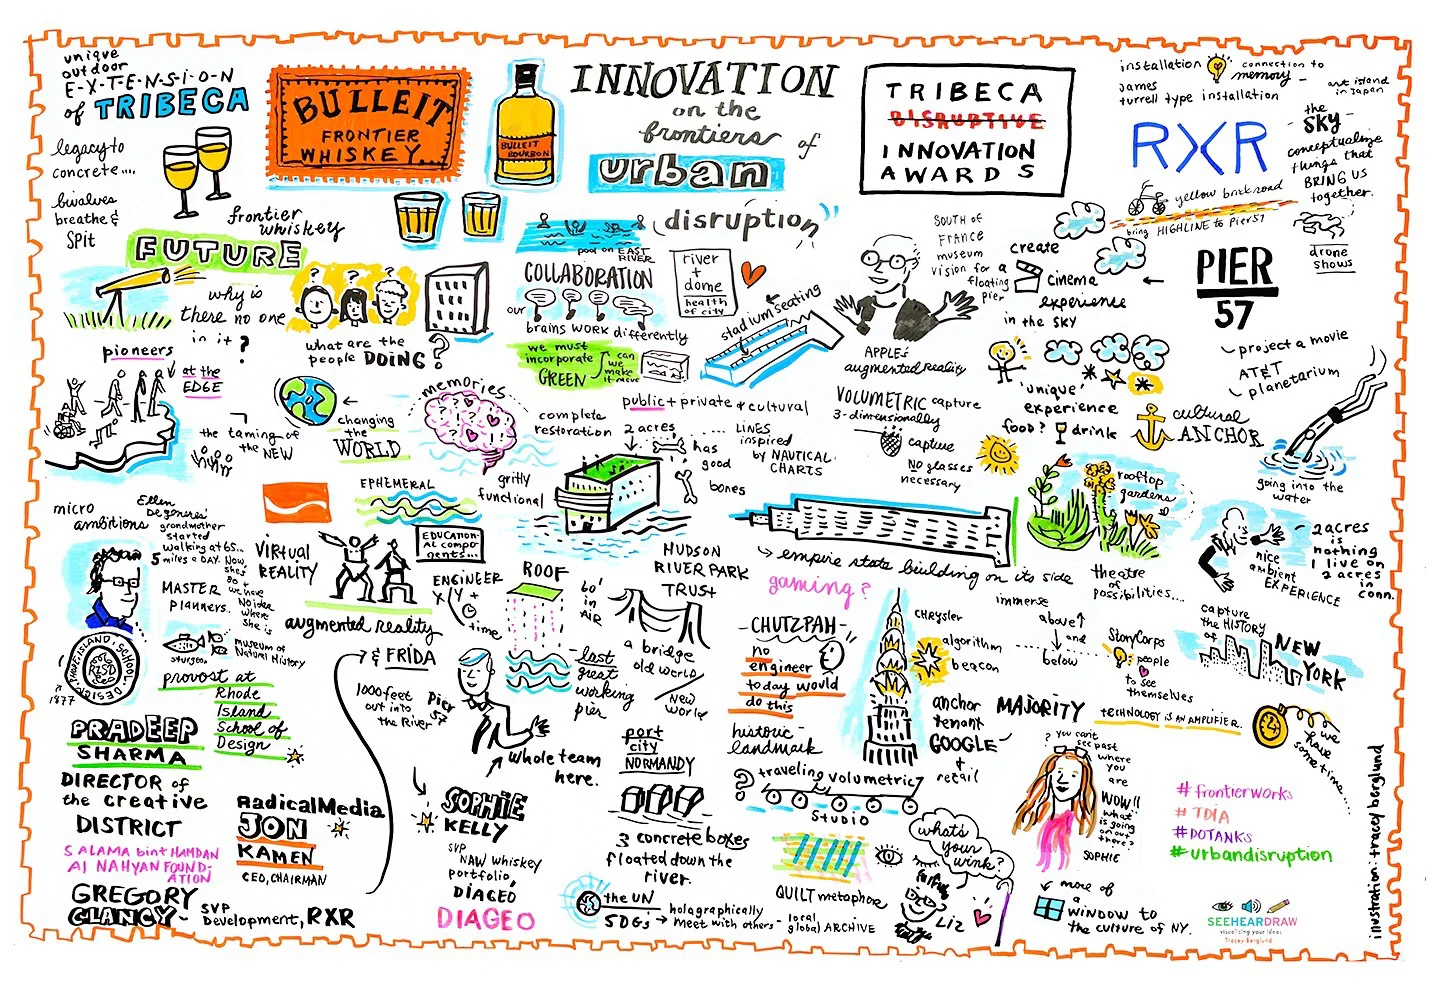 unique
outdoor
E-X-T-E-N-S-I-O-N
of TRIBECA
legacy to
concrete....
bivalves
breathe &
SPIT
BULLEIT
FRONTIER
WHISKEY
BULLEIT
BOURBON
frontier
whiskey
INNOVATION
on the
frontiers of
urban
disruption"
TRIBECA
DISRUPTIVE
INNOVATION
AWARDS
installation
connection to
memory
James
turrell type installation
art island
in Japan
RXR
the
SKY-
conceptualize
things that
BRING US
together.
yellow brick road
bring HIGHLINE to Pier 57
drone
shows
PIER
57
FUTURE
why is
there no one
in it?
? ? ?
what are the
people DOING?
pool on EAST
RIVER
COLLABORATION
our
brains WORK differently
river
+
dome
health
of city
we must
incorporate
GREEN
can
we
make
it move
stadium seating
SOUTH OF
France
museum
vision for a
floating
Pier
APPLE's
augmented reality
create
cinema
experience
in the SKY
project a movie
AT&T
planetarium
'unique'
experience
food? drink
cultural
ANCHOR
going into the
water
pioneers
at the
EDGE
the taming of
the NEW
changing
the
WORLD
memories
complete
restoration
gritty
functional
public + private + cultural
2 acres .... LINES
inspired
by NAUTICAL
CHARTS
has
good
bones
VOLUMETRIC capture
3-dimensionally
capture
NO glasses
necessary
rooftop
gardens
micro
ambitions
Ellen
Degeneres'
grandmother
started
walking at 65...
5 miles a DAY. Now,
she's
80 &
we have
NO idea
where
she is
MASTER
planners.
EPHEMERAL
VIRTUAL
REALITY
EDUCATION-
AL compo-
nents...
augmented reality
& FRIDA
ENGINEER
X/Y +
time
ROOF
60'
in
AIR
HUDSON
RIVER PARK
TRUST
a bridge
old world
/
New
World
last
great
working
pier
empire state building on its side
gaming?
theatre of
possibilities...
nice
ambient
EXPERIENCE
2 acres
is
nothing
I live on
2 acres
in
conn.
RHODE ISLAND SCHOOL of DESIGN
RISD
1877
sturgeon
museum of
Natural History
provost at
Rhode
Island
School of
Design
PRADEEP
SHARMA
DIRECTOR of
the creative
DISTRICT
SALAMA bint HAMDAN
Al NAHYAN FOUND-
ATION
GREGORY
CLANCY-
SVP
Development, RXR
RadicalMedia
JON
KAMEN
CEO, CHAIRMAN
1000 feet
out into
the River
Pier
57
whole team
here.
SOPHIE
KELLY
SVP
NAW whiskey
portfolio,
DIAGEO
DIAGEO
port
city
NORMANDY
3 concrete boxes
floated down the
river.
the UN
SDGs
holagraphically
meet with others
CHUTZPAH
no
engineer
today would
do this
historic
landmark
chrysler
algorithm
beacon
immerse
above
and
below
anchor
tenant
GOOGLE
+
retail
traveling volumetric
STUDIO
QUILT metaphor
local
global ARCHIVE
what's
your
wink?
LIZ
MAJORITY
StoryCorps
people
to see
themselves
capture
the HISTORY
of
NEW
YORK
TECHNOLOGY IS AN AMPLIFIER.
we
have
some time...
? you can't
see past
where
you
are
WOW!!
what
is going
on out
there?
SOPHIE
more of
a
WINDOW to
the culture of NY.
#frontierworks
# TDIA
#DOTANKS
#urbandisruption
SEEHEARDRAW
visualizing your ideas
Tracey Berglund
illustration: tracey berglund